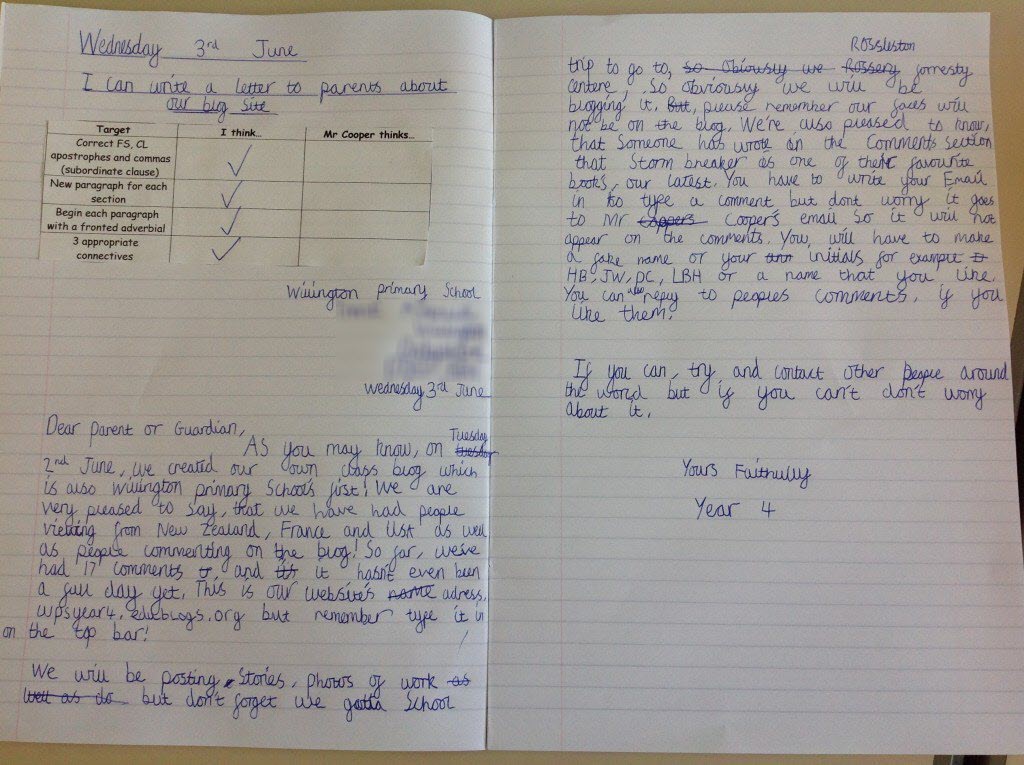 Wednesday 3rd June
I can write a letter to parents about
our blog site
Target I think... Mr Cooper thinks...
Correct FS, CL
apostrophes and commas
(subordinate clause)
New paragraph for each
section
Begin each paragraph
with a fronted adverbial
3 appropriate
connectives
Willington primary School
Wednesday 3rd June
Dear Parent or Guardian,
As you may know, on Tuesday tuesday
2nd June, we created our own class blog which
is also Willington primary School's first! We are
very pleased to say, that we have had people
viewing from New Zealand, France and USA as well
as people commenting on the blog! So far, we've
had 17 comments, and it's it hasn't even been
a full day yet. This is our website's name adress.
wpsyear4.edublogs.org but remember type it in
on the top bar!
We will be posting, Stories, photos of work as
well as do but don't forget we gotta School
trip to go to, so obviously we Rossery Rossleston forresty
centere, So obviously we will be
blogging it. But, please remember our faces will
not be on the blog. We're also pleased to know,
that Someone has wrote on the Comments Section
that Storm breaker as one of their favourite
books, our latest. You have to write your Email
in to type a comment but dont worry it goes
to Mr Coppers Cooper's email So it will not
appear on the comments. You, will have to make
a fake name or your initials for example
HB, JW, DC, LBH or a name that you like.
You can also reply to peoples comments, if you
like them.
If you can, try and contact other people around
the world but if you can't don't worry
about it.
Yours Faithfully
Year 4